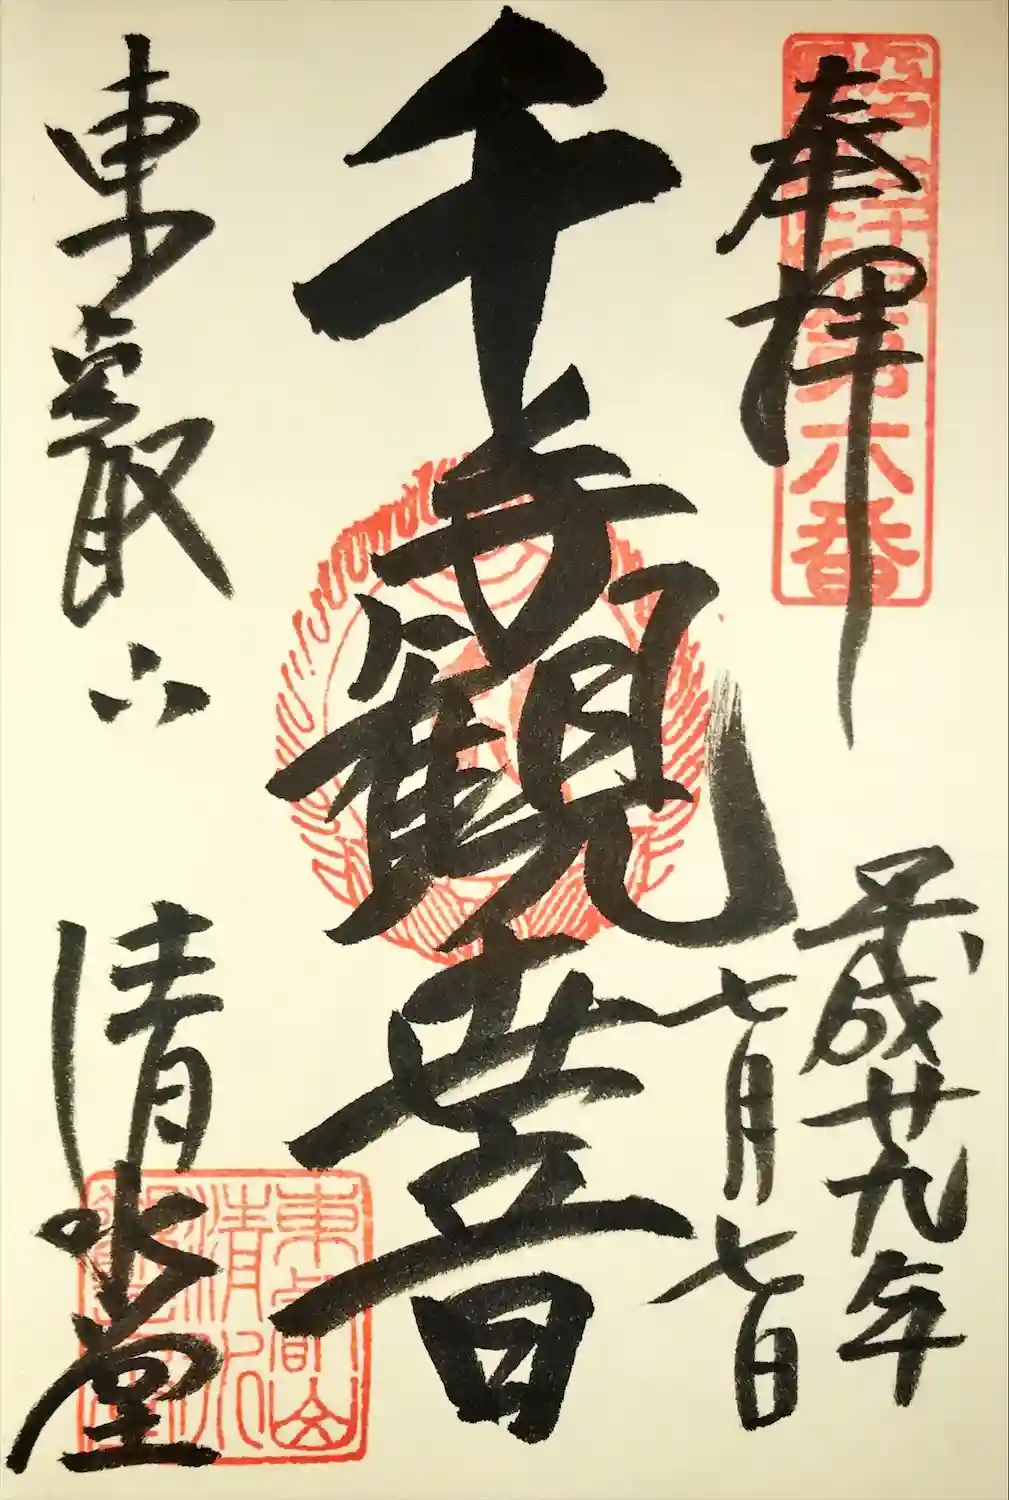 奉拝
平成廿九年
七月七日
千手観世音
東叡山
清水堂
第六番
東叡山
清水